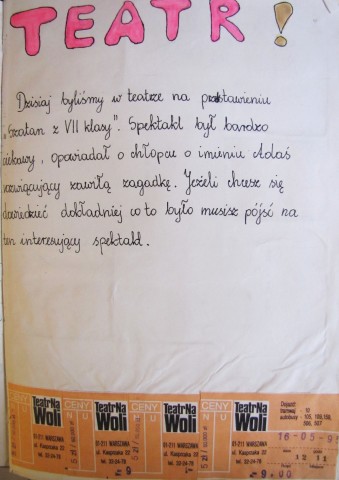 TEATR!
Dzisiaj byliśmy w teatrze na przedstawieniu
„Szatan z VII klasy". Spektakl był bardzo
ciekawy, opowiadał o chłopcu o imieniu Adaś
rozwiązujący zawiłą zagadkę. Jeżeli chcesz się
dowiedzieć dokładniej co to było musisz pójść na
ten interesujący spektakl.
TeatrNa Woli
01-211 WARSZAWA
ul. Kasprzaka 22
tel. 32-24-78
CENY
TeatrNa Woli
01-211 WARSZAWA
ul. Kasprzaka 22
tel. 32-24-78
CENY
TeatrNa Woli
01-211 WARSZAWA
ul. Kasprzaka 22
tel. 32-24-78
CENY
TeatrNa Woli
01-211 WARSZAWA
ul. Kasprzaka 22
tel. 32-24-78
Dojazd:
16-05-9
9.00